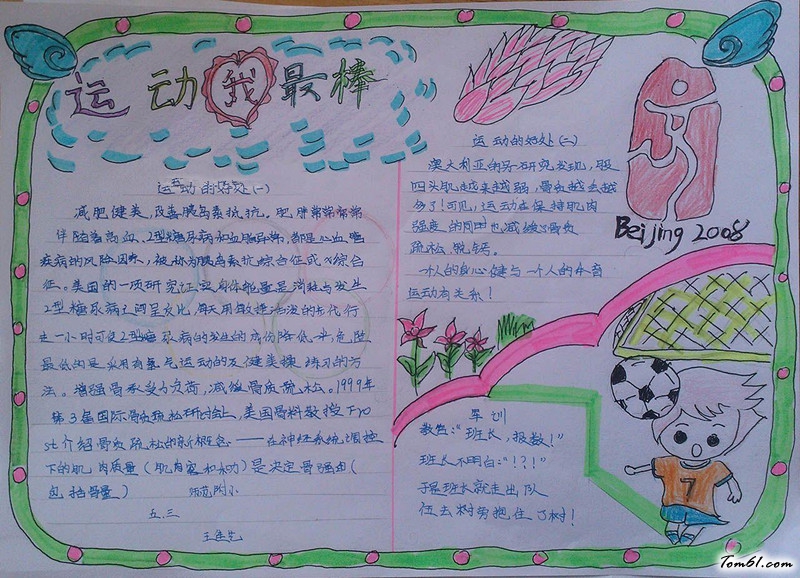 运动我最棒
运动的好处(一)
减肥健美,改善胰岛素抵抗,肥胖常常常
伴随着高血、2型糖尿病和血脂异常,都是心血脂
疾病的风险因素,被称为胰岛素抗综合征或X综合
征。美国的一项研究证实身体能量是消耗与发生
2型糖尿病之间呈反比,每天用敏捷活泼的步代行
走一小时可使2型糖尿病的发生的成份降低一半,危险
最低的是采用有氧气运动的及健美操练习的方
法。增强骨承受力负荷,减缓骨质疏松。1999年
第3届国际骨质疏松研讨会上,美国骨科教授Fro
st介绍骨质疏松的新概念——在神经系统调控
下的肌肉质量(肌肉容和永力)是决定骨强由(
包括骨量)
五.三
运动的好处(二)
澳大利亚的研究发现,股
四头肌越来越弱,骨质越丢越
多了!可见,运动在保持肌肉
强度的同时也减缓骨质
疏松脱钙。
一个人的身心健与一个人的体育
运动有关系!
Beijing 2008
早训
教官:“班长,报数!”
班长不明白:“!?!”
于是班长就走出队
伍去树旁抱住了树!
7
Tom61.com